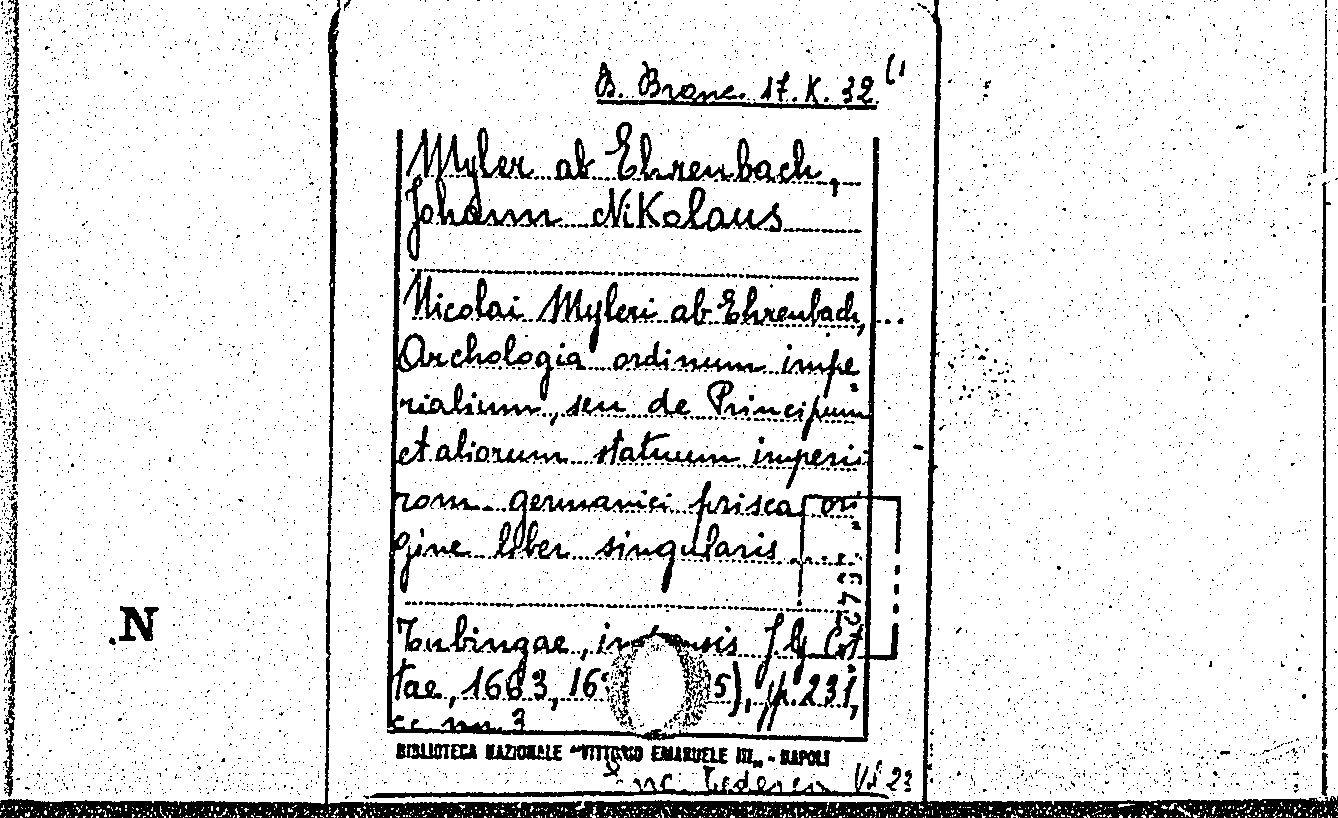 B. Branc. 17. K. 32 (1
Myler ab Ehrenbach,
Johann Nikolaus
Nicolai Myleri ab Ehrenbach, ...
Archologia ordinum impe
rialium, seu de Principum
et aliorum statuum imperii
rom. germanici prisca ori
gine liber singularis ....
Tubingae, J. G. Cot
tae, 1663, 16 5), pp. 231,
cc. nn. 3
BIBLIOTECA NAZIONALE "VITTORIO EMANUELE III" - NAPOLI
VI 23
.N